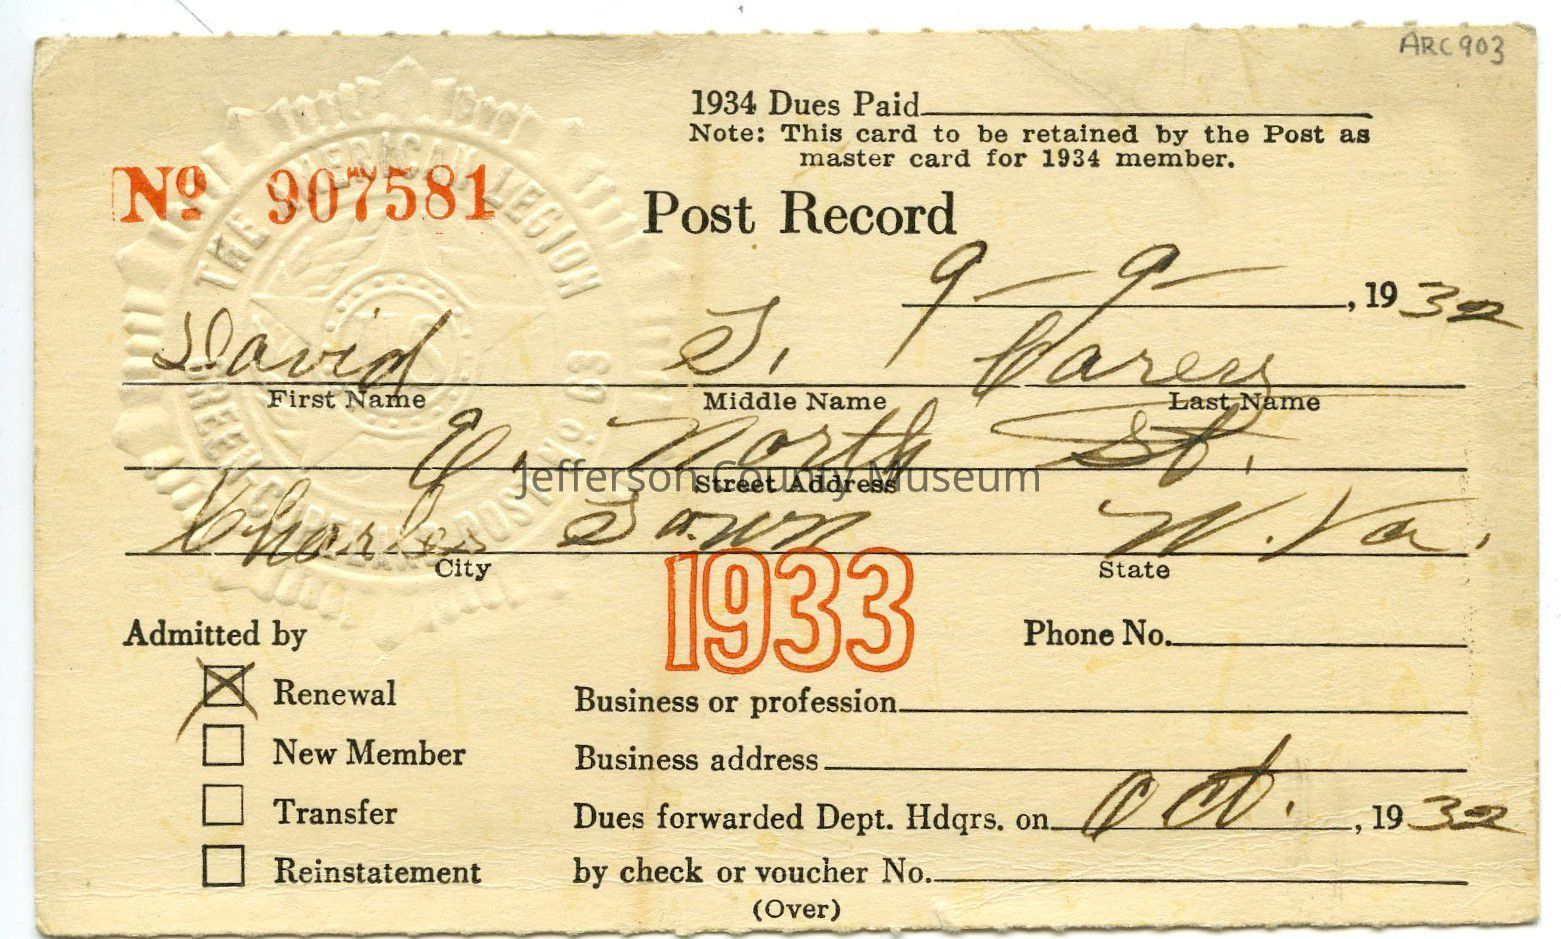 ARC 903
1934 Dues Paid
Note: This card to be retained by the Post as
master card for 1934 member.
No 907581
THE AMERICAN LEGION
POST No 83
Post Record
9-9-, 1932
David S. Carey
First Name Middle Name Last Name
E. North St.
Street Address
Jefferson County Museum
Charles Town W. Va.
City State
1933
Admitted by Phone No.
Renewal
Business or profession
New Member
Business address
Transfer
Dues forwarded Dept. Hdqrs. on Oct., 1932
Reinstatement
by check or voucher No.
(Over)